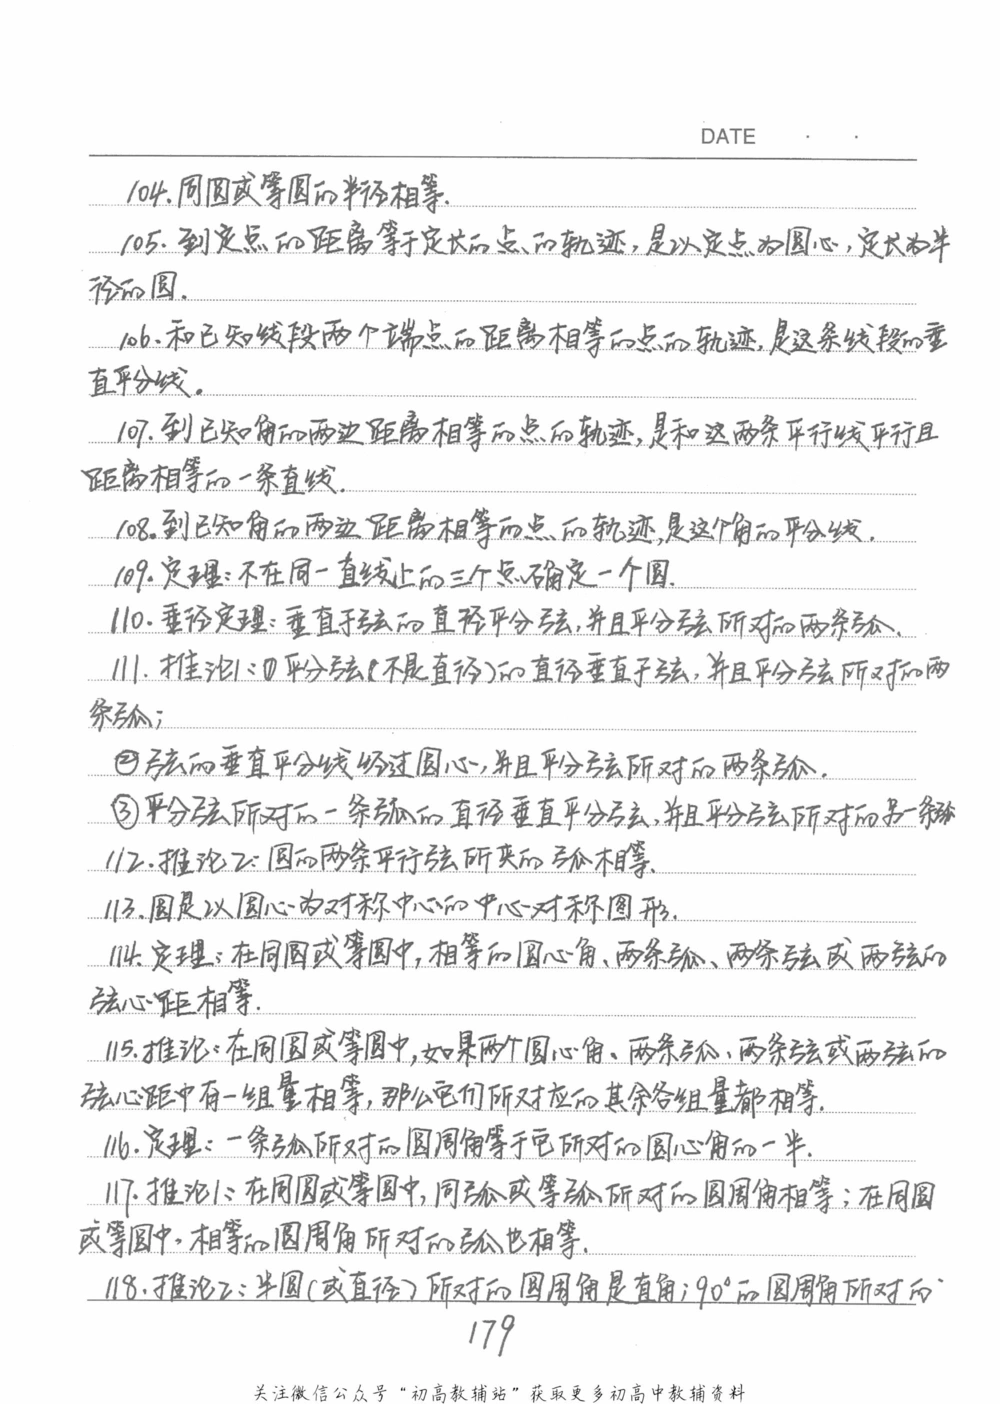 DATE · ·
104.同圆或等圆的半径相等.
105.到定点的距离等于定长的点的轨迹,是以定点为圆心,定长为半
径的圆.
106.和已知线段两个端点的距离相等的点的轨迹,是这条线段的垂
直平分线。
107.到已知角的两边距离相等的点的轨迹,是和这两条平行线平行且
距离相等的一条直线.
108.到已知角的两边距离相等的点的轨迹,是这个角的平分线.
109.定理:不在同一直线上的三个点确定一个圆.
110.垂径定理:垂直于弦的直径平分弦,并且平分弦所对的两条弧.
111.推论1:①平分弦(不是直径)的直径垂直于弦,并且平分弦所对的两
条弧;
②弦的垂直平分线经过圆心,并且平分弦所对的两条弧.
③平分弦所对的一条弧的直径垂直平分弦,并且平分弦所对的另一条弧
112.推论2:圆的两条平行弦所夹的弧相等.
113.圆是以圆心为对称中心的中心对称图形.
114.定理:在同圆或等圆中,相等的圆心角、两条弧、两条弦或两弦的
弦心距相等.
115.推论:在同圆或等圆中,如果两个圆心角、两条弧、两条弦或两弦的
弦心距中有一组量相等,那么它们所对应的其余各组量都相等.
116.定理:一条弧所对的圆周角等于它所对的圆心角的一半.
117.推论1:在同圆或等圆中,同弧或等弧所对的圆周角相等;在同圆
或等圆中,相等的圆周角所对的弧也相等.
118.推论2:半圆(或直径)所对的圆周角是直角;90°的圆周角所对的
179
关注微信公众号“初高教辅站”获取更多初高中教辅资料